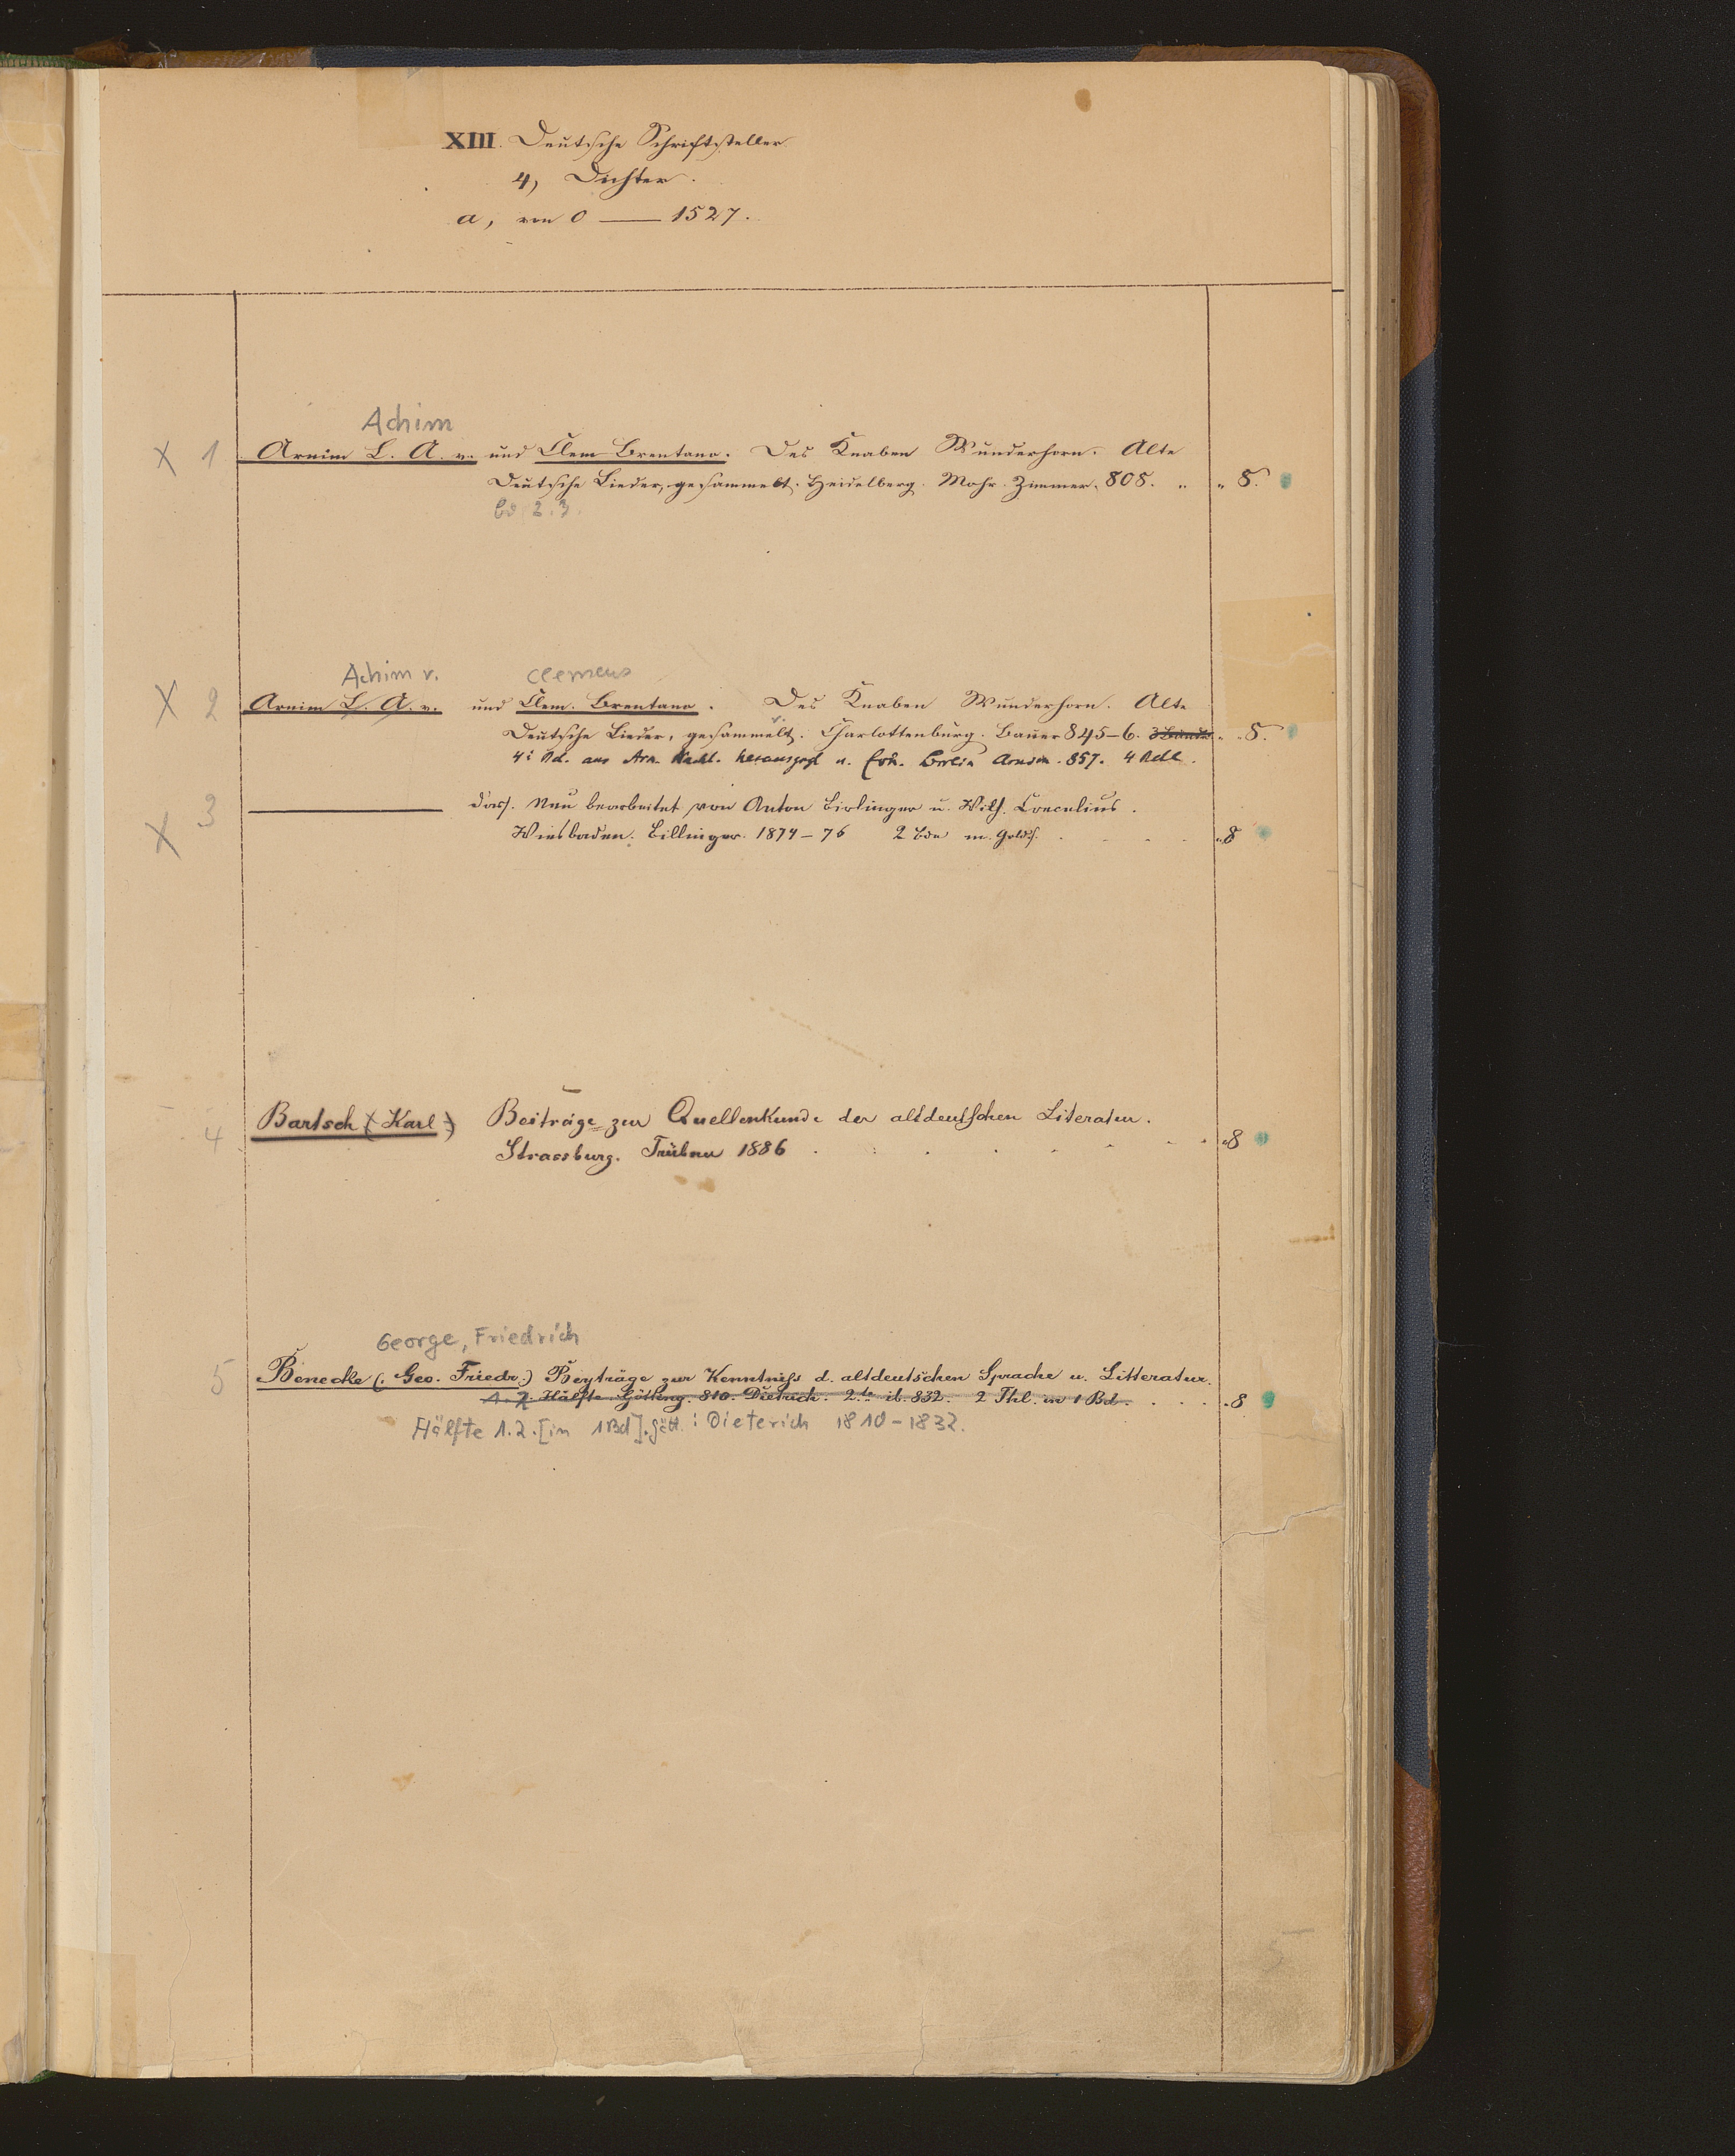 XIII. Deutsche Schriftsteller
4, Dichter.
a, von 0 — 1527.
Achim
X 1 Arnim L. A. v. und Clem Brentano. Des Knaben Wunderhorn. Alte
Deutsche Lieder, gesammelt. Heidelberg. Mohr. Zimmer. 808. „ „ 8.
Bd 2.3.
Achim v. Clemens
X 2 Arnim L. A. v. und Clem. Brentano. Des Knaben Wunderhorn. Alte
Deutsche Lieder, gesammelt. Charlottenburg. Bauer 845–6. 3 Bände. „ 8.
4r Bd. aus Arn. Nachl. herausgegt v. Erk. Berlin Arnim. 857. 4 Bde.
X 3 ——— dass. Neu bearbeitet von Anton Birlinger u. Wilh. Crecelius.
Wiesbaden. Killinger. 1874–76 2 Bde m. Golds. . . . . „8
4 Bartsch (Karl) Beiträge zur Quellenkunde der altdeutschen Literatur.
Strassburg. Trübner 1886 . . . . . . „8
George, Friedrich
5 Benecke (. Geo. Friedr.) Beyträge zur Kenntniß d. altdeutschen Sprache u. Litteratur.
1. 2. Hälfte Götting. 810. Dietrich. 2te ib. 832. 2 Thl. in 1 Bd. . . . . 8
Hälfte 1.2. [in 1 Bd]. Gött.: Dieterich 1810–1832.
5